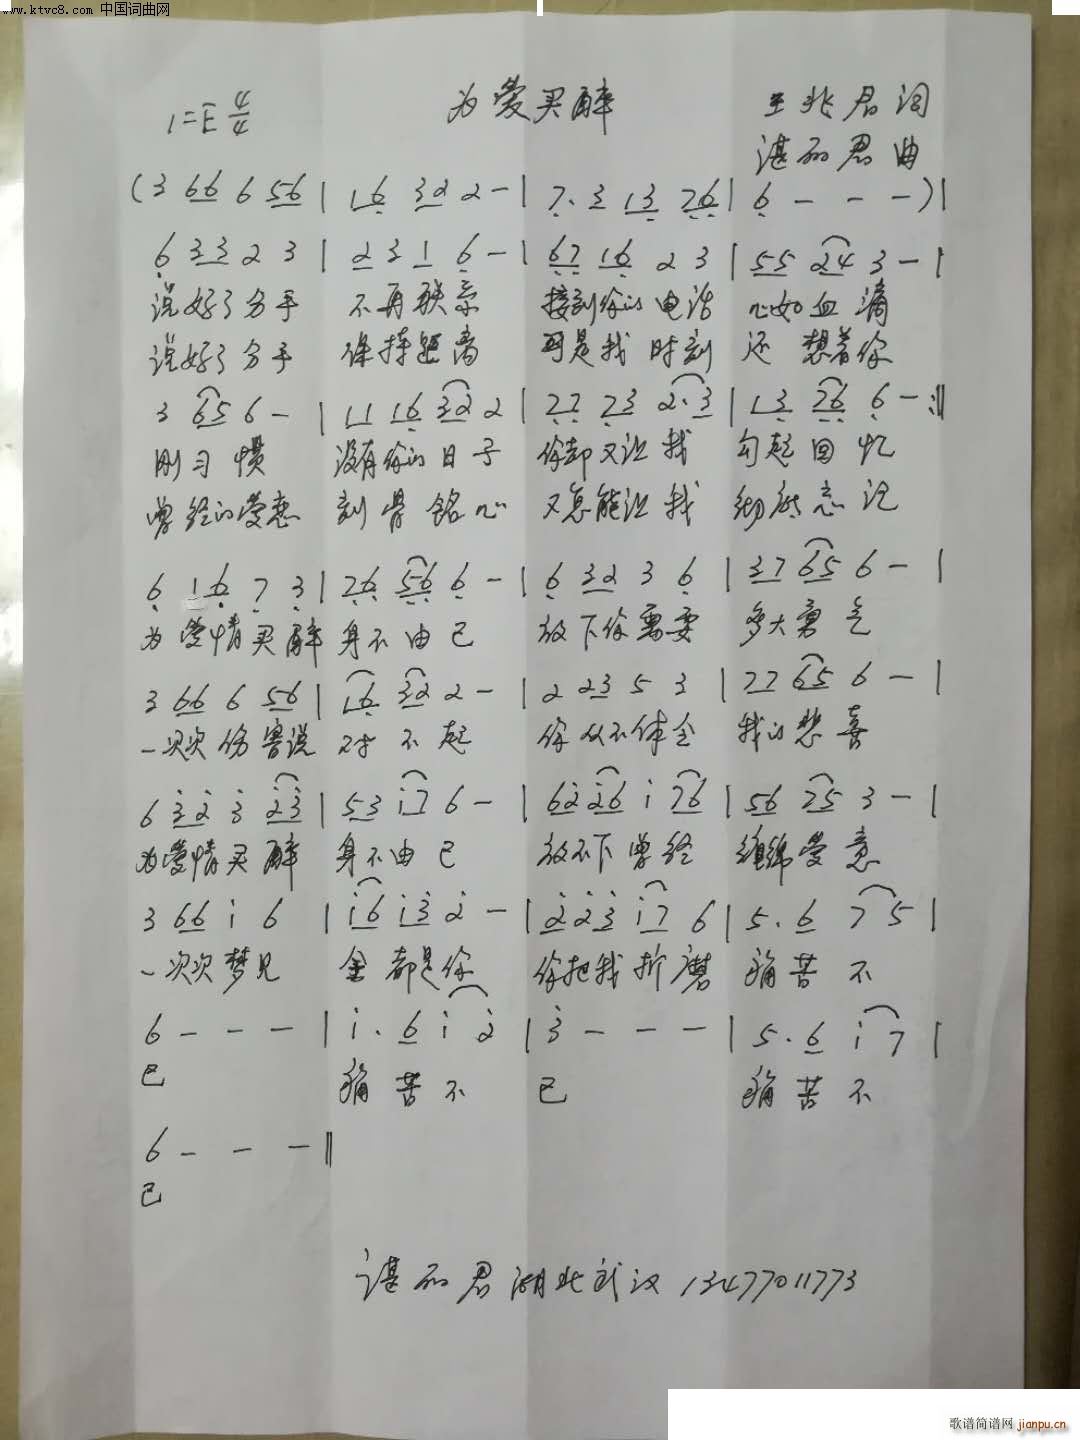 www.ktvc8.com 中国词曲网
1=E 4/4 为爱买醉 王兆君词
谌丽君曲
(3 66 6 56 | 16 32 2 - | 7. 3 13 76 | 6 - - - )|
6 33 2 3 | 2 3 1 6 - | 67 16 2 3 | 55 24 3 - |
说好了分手 不再联系 接到你的电话 心如血滴
说好了分手 保持距离 可是我时刻 还想着你
3 65 6 - | 11 16 32 2 | 77 73 2.3 | 13 76 6 - :||
刚习惯 没有你的日子 你却又让我 勾起回忆
曾经的爱恋 刻骨铭心 又怎能让我 彻底忘记
6 16 7 3 | 76 56 6 - | 6 32 3 6 | 37 65 6 - |
为爱情买醉 身不由己 放下你需要 多大勇气
3 66 6 56 | 16 32 2 - | 2 23 5 3 | 77 65 6 - |
一次次伤害说 对不起 你从不体会 我的悲喜
6 32 3 23 | 53 i7 6 - | 62 26 i 76 | 56 75 3 - |
为爱情买醉 身不由己 放不下曾经 缠绵爱意
3 66 i 6 | i6 i3 2 - | 2 23 i7 6 | 5. 6 7 5 |
一次次梦见 全都是你 你把我折磨 痛苦不
6 - - - | i. 6 i 2 | 3 - - - | 5. 6 i 7 |
已 痛苦不 已 痛苦不
6 - - - ||
已
谌丽君湖北武汉 13477011773
歌谱简谱网 jianpu.cn